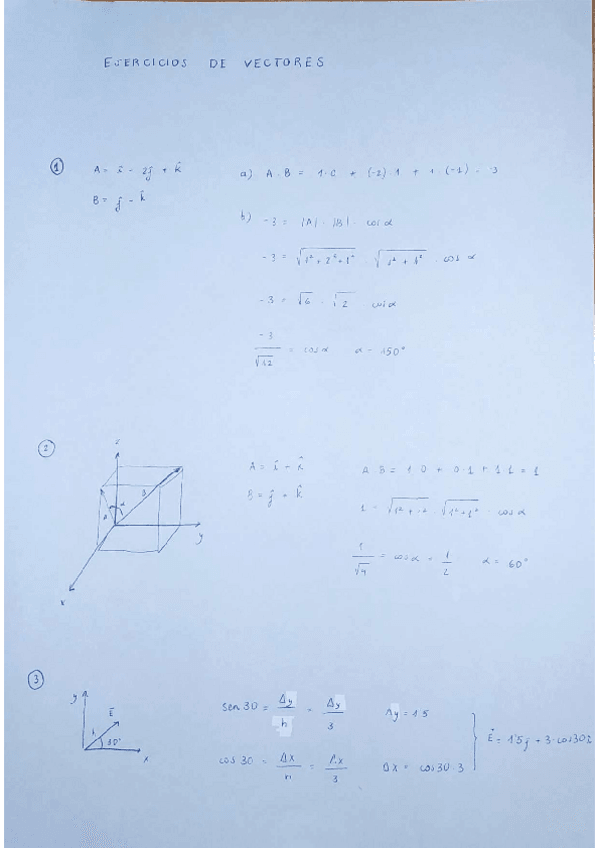 EJERCICIOS DE VECTORES
1
A = î - 2ĵ + k̂
B = ĵ - k̂
a) A·B = 1·0 + (-2)·1 + 1·(-1) = -3
b) -3 = |A| · |B| · cos α
-3 = √(1² + 2² + 1²) · √(1² + 1²) · cos α
-3 = √6 · √2 cos α
-3/√12 = cos α α = 150°
2
z
y
x
A
α
B
A = î + k̂
B = ĵ + k̂
A·B = 1·0 + 0·1 + 1·1 = 1
1 = √(1² + 1²) · √(1² + 1²) · cos α
1/√4 = cos α = 1/2 α = 60°
3
y
E
h
30°
x
sen 30 = Δy/h = Δy/3 Δy = 1'5
cos 30 = Δx/h = Δx/3 Δx = cos30·3
E = 1'5ĵ + 3·cos30î